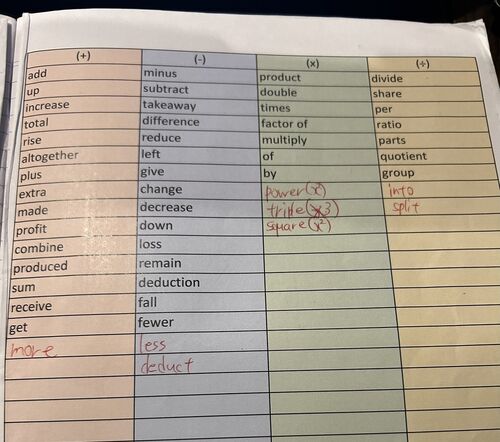 (+) (-) (x) (÷)
add minus product divide
up subtract double share
increase takeaway times per
total difference factor of ratio
rise reduce multiply parts
altogether left of quotient
plus give by group
extra change power(xⁿ) into
made decrease triple(x3) split
profit down square(x²)
combine loss
produced remain
sum deduction
receive fall
get fewer
more less
deduct